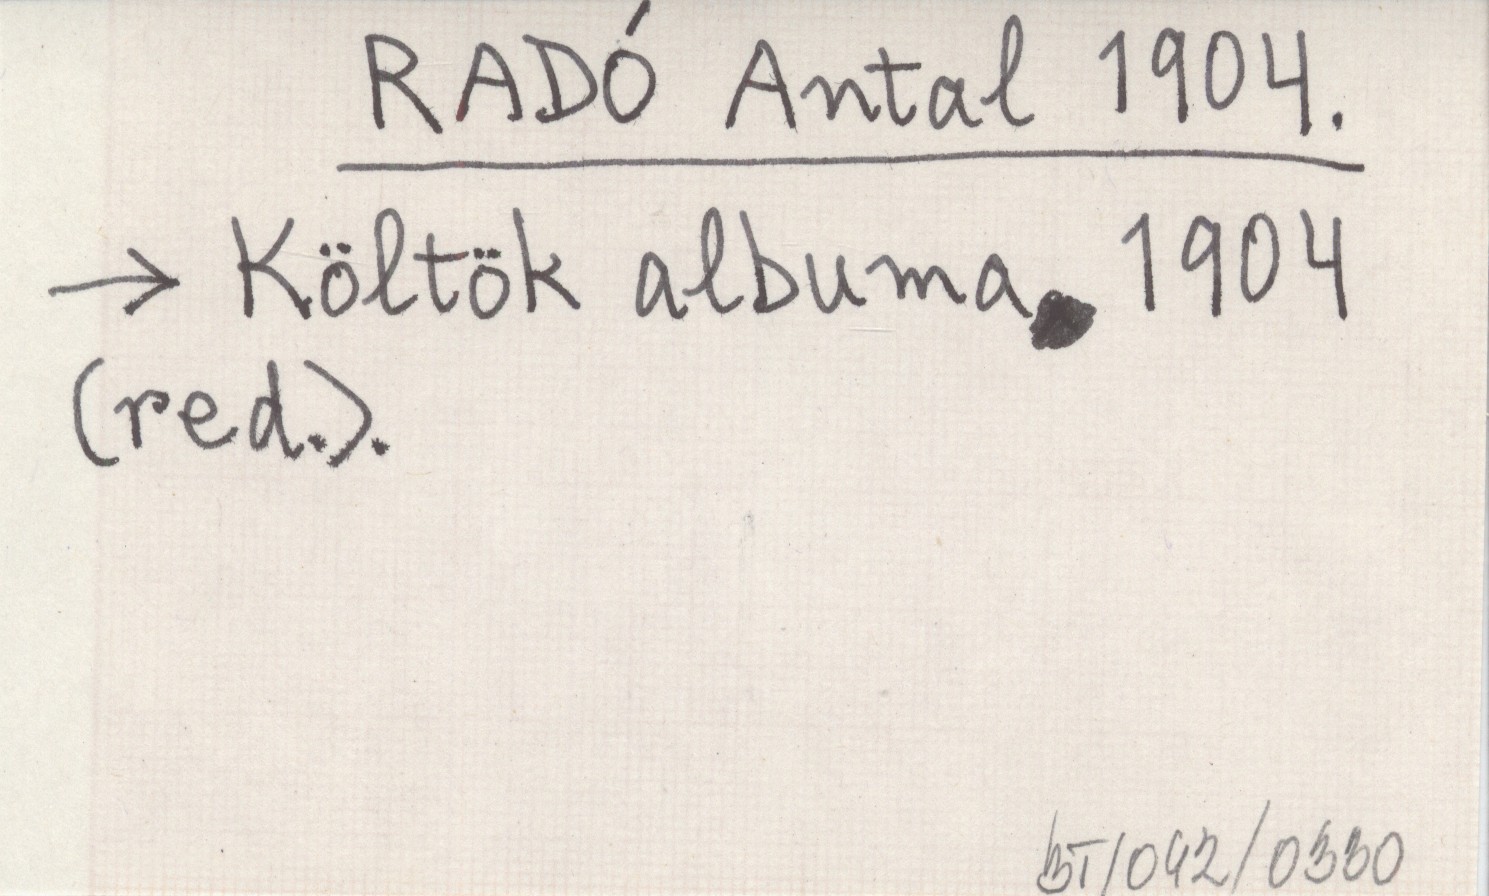 RADÓ Antal 1904.
→ Költök albuma. 1904
(red.).
BT/042/0330